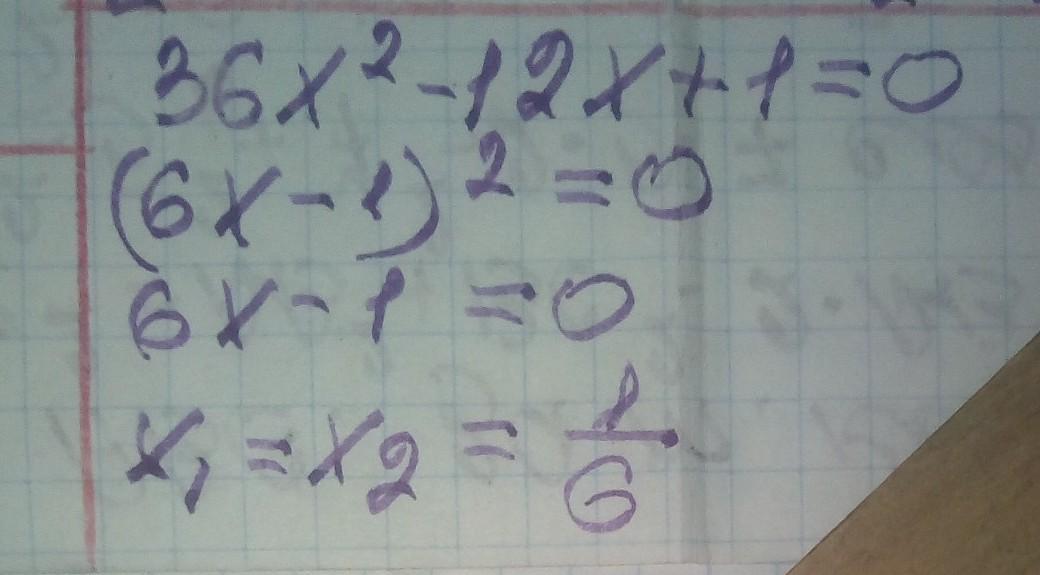 36x² - 12x + 1 = 0
(6x - 1)² = 0
6x - 1 = 0
x₁ = x₂ = 1/6